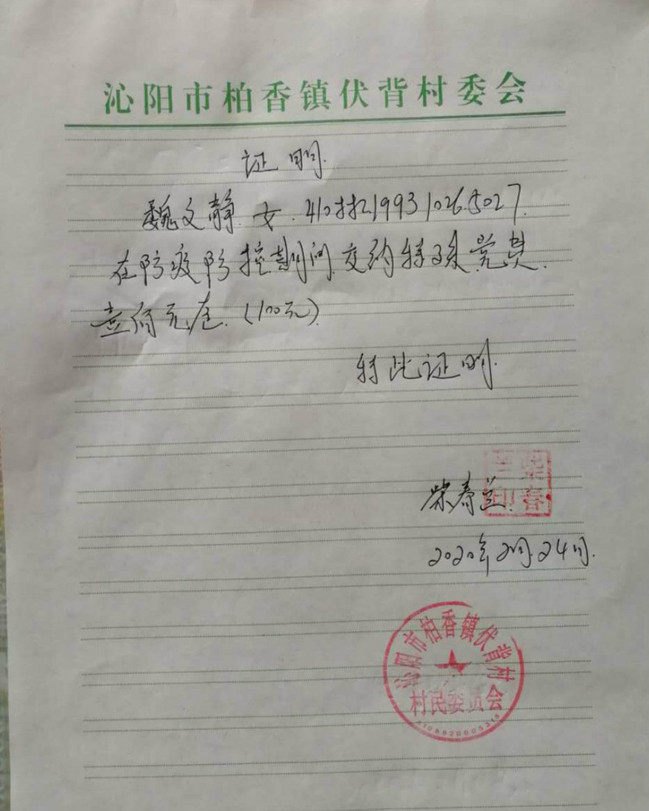 沁阳市柏香镇伏背村委会
证明
魏文静.女.410882199310265027.
在防疫防控期间.交纳特殊党费.
壹佰元整.(100元)
特此证明.
柴春兰
柴春兰印
2020年2月24日.
沁阳市柏香镇伏背村
村民委员会